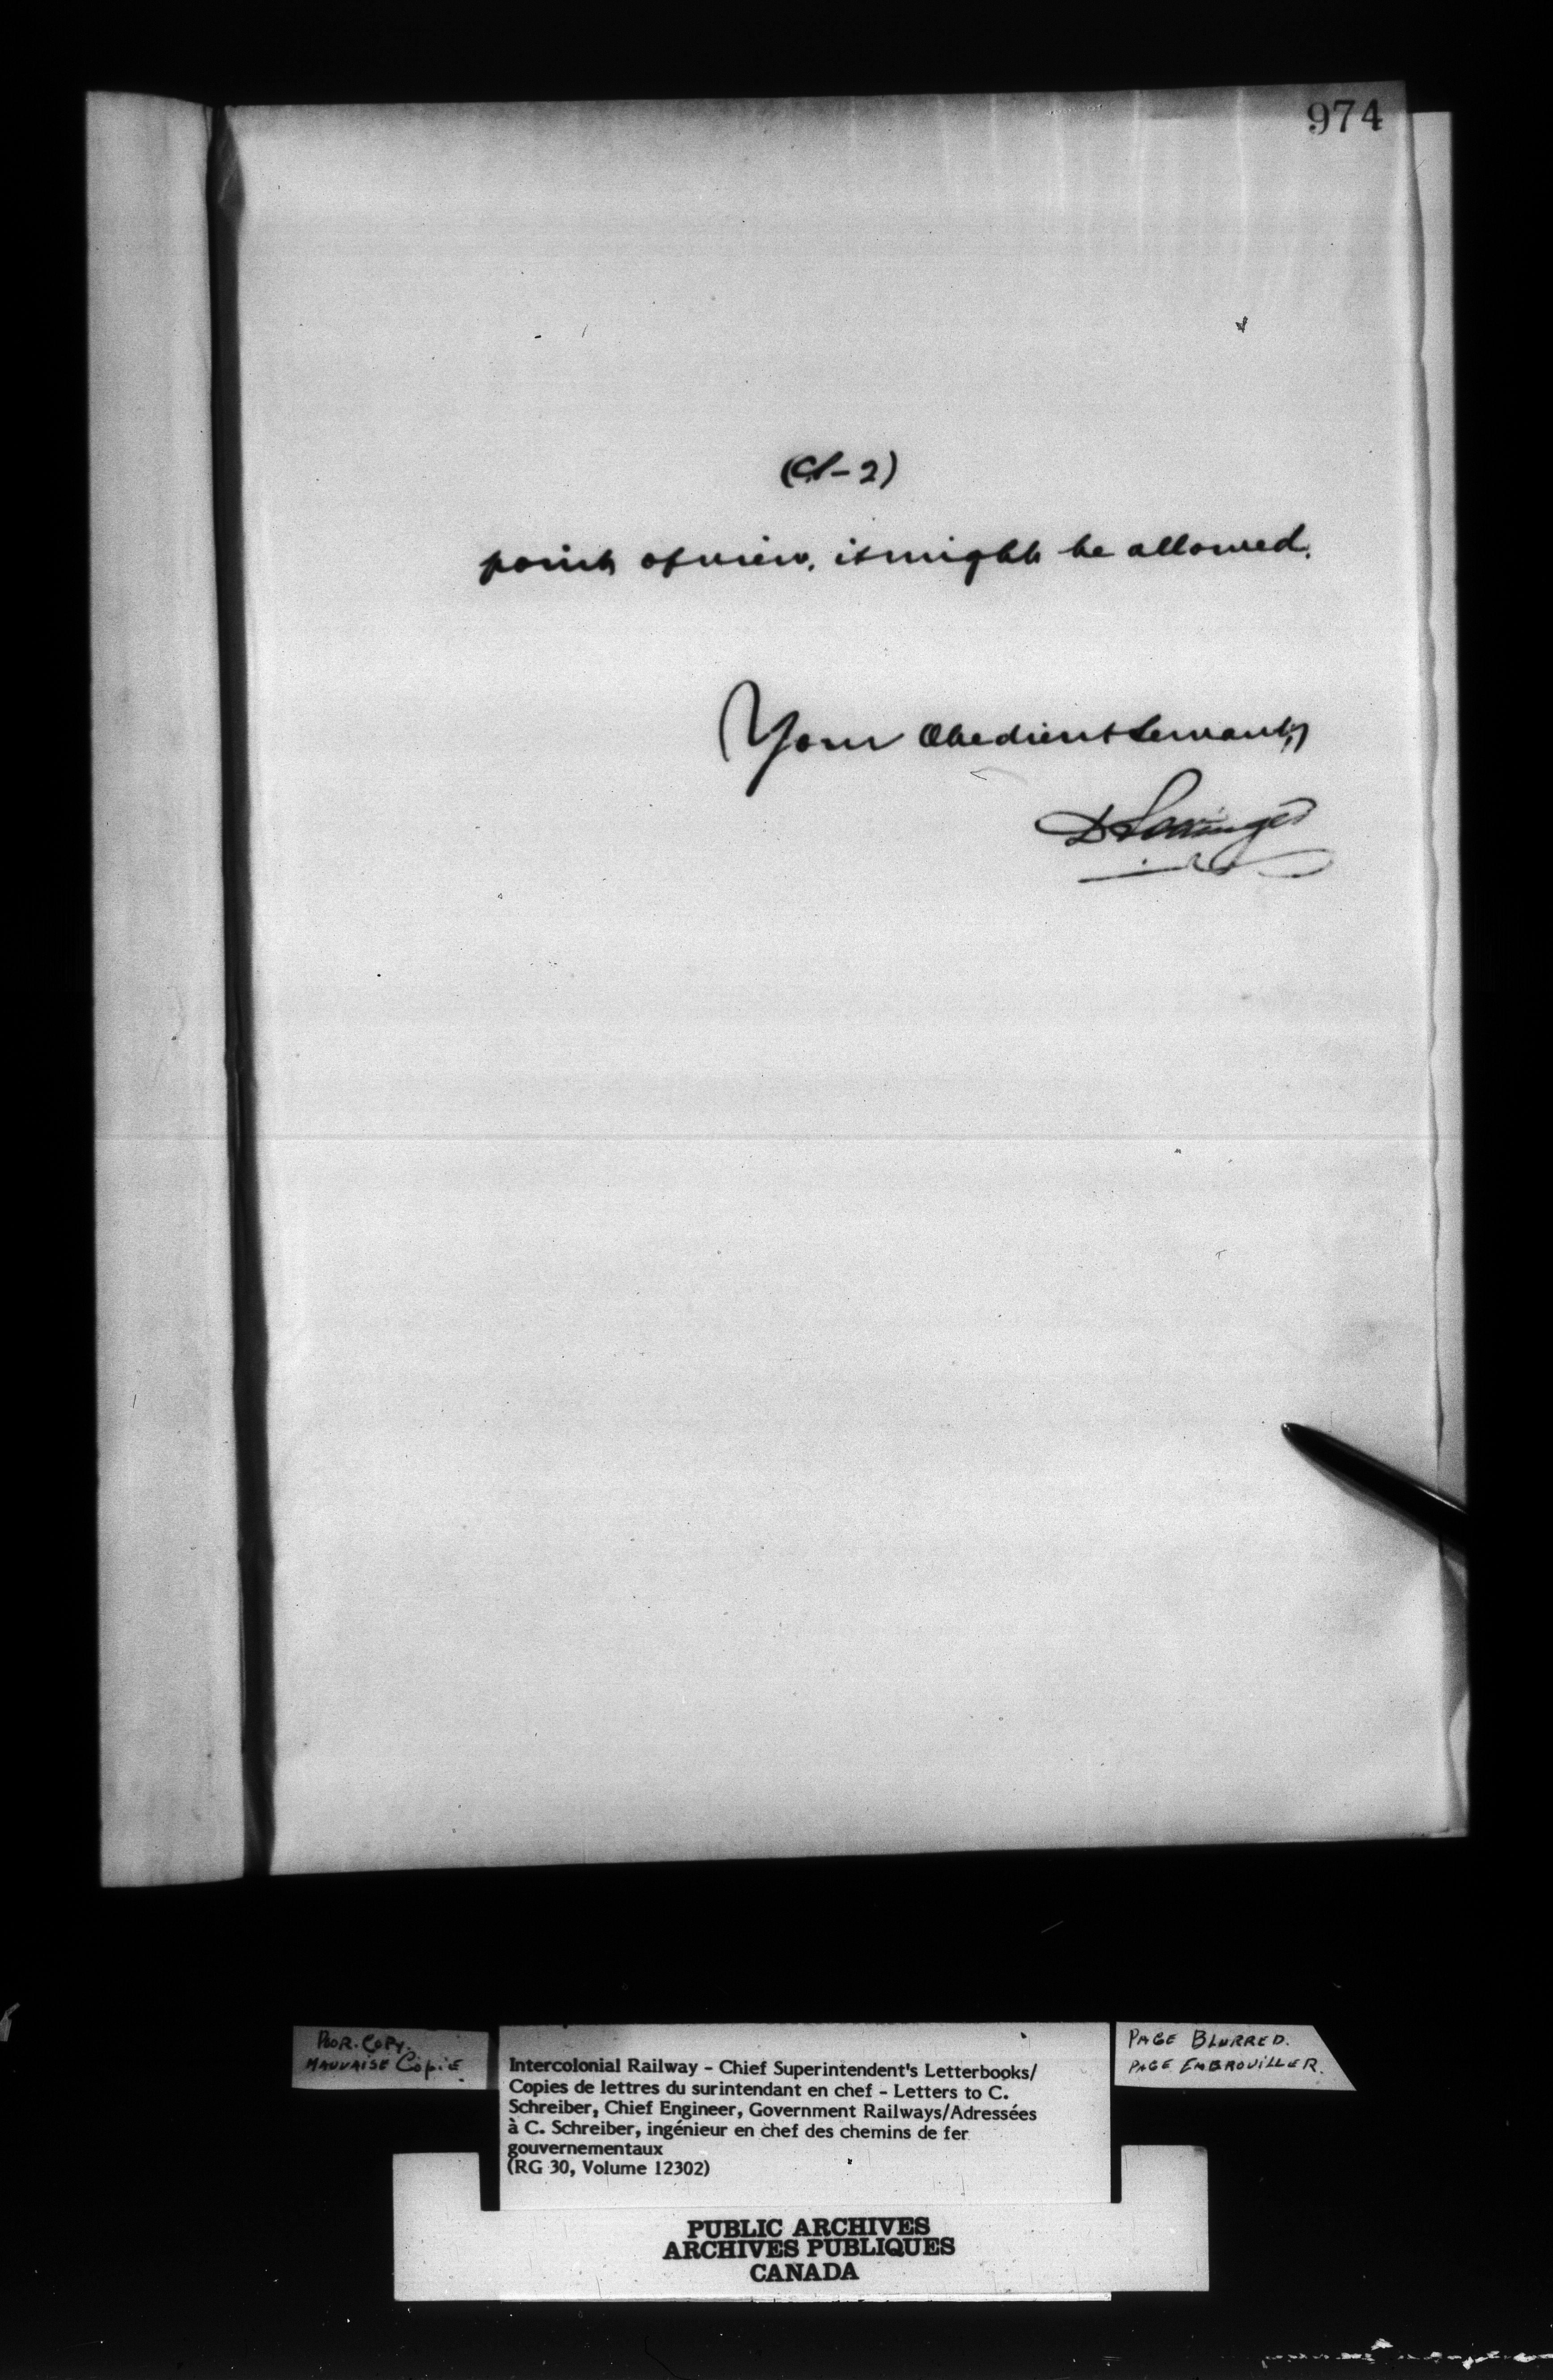 974
(Cl-2)
point of view, it might be allowed.
Your Obedient Servant,
D Pottinger
POOR. COPY.
MAUVAISE COPIE.
Intercolonial Railway - Chief Superintendent's Letterbooks/
Copies de lettres du surintendant en chef - Letters to C.
Schreiber, Chief Engineer, Government Railways/Adressées
à C. Schreiber, ingénieur en chef des chemins de fer
gouvernementaux
(RG 30, Volume 12302)
PAGE BLURRED.
PAGE EMBROUILLER.
PUBLIC ARCHIVES
ARCHIVES PUBLIQUES
CANADA